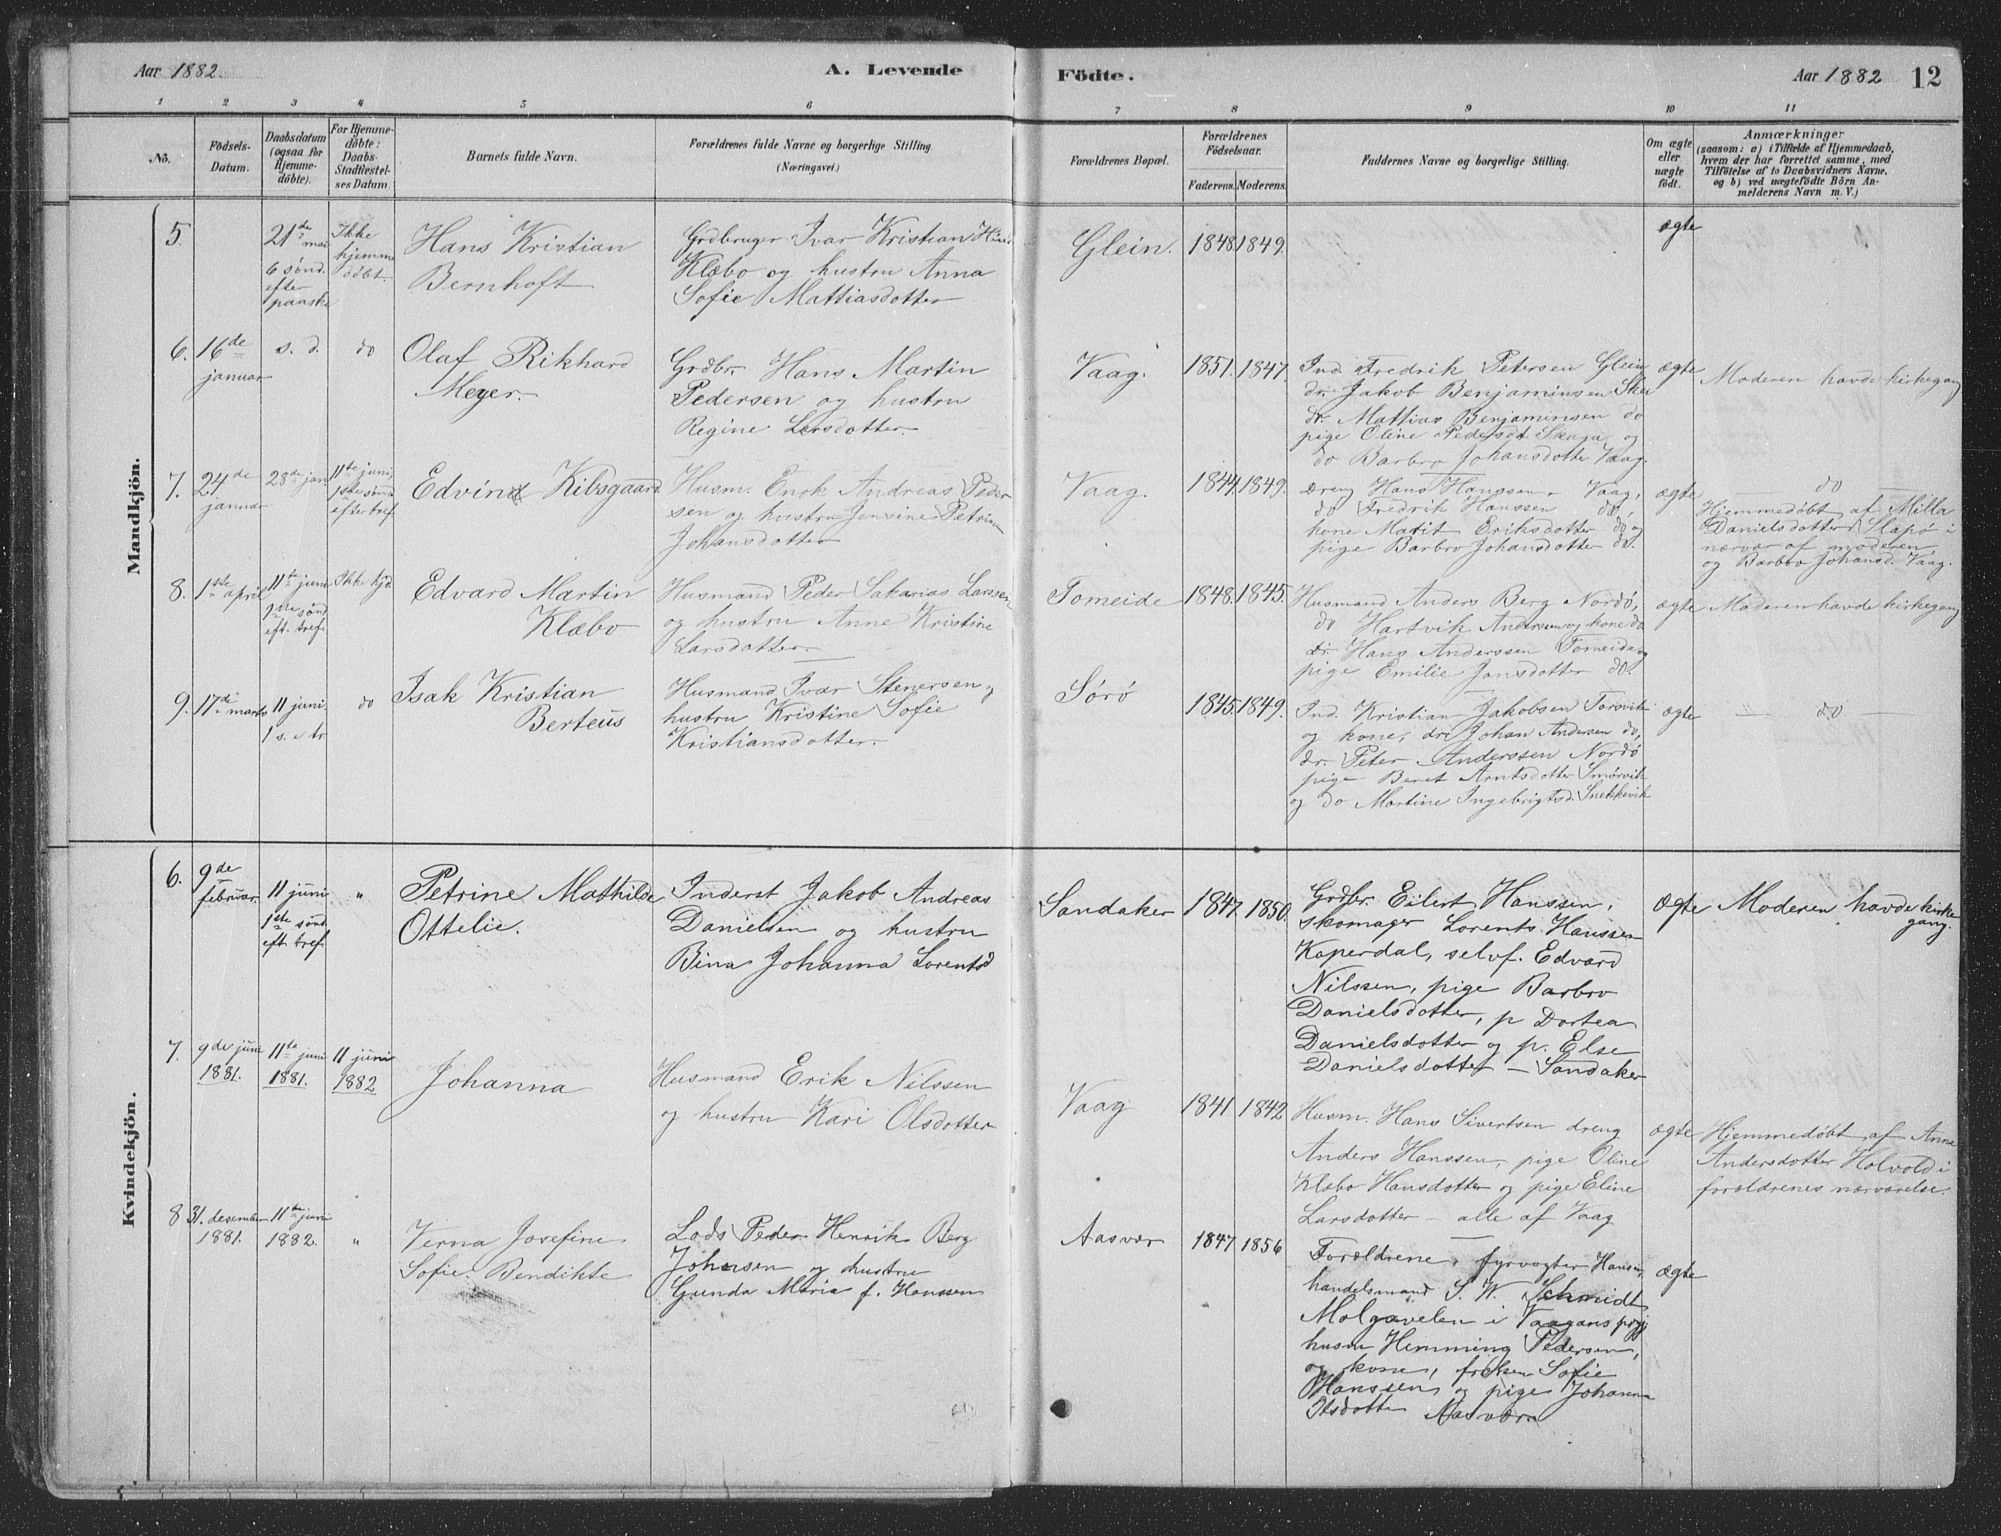 Aar 1882. A. Levende Födte. Aar 1882 12
1 2 3 4 5 6 7 8 9 10 11
No.
Födsels-
Datum.
Daabsdatum
(ogsaa for
Hjemme-
döbte).
For Hjemme-
döbte:
Daabs-
Stadfæstel-
ses Datum.
Barnets fulde Navn.
Forældrenes fulde Navne og borgerlige Stilling.
(Næringsvei.)
Forældrenes Bopæl.
Forældrenes
Födselsaar.
Faderens. Moderens.
Faddernes Navne og borgerlige Stilling.
Om ægte
eller
uægte
födt.
Anmærkninger
(saasom: a) i Tilfælde af Hjemmedaab,
hvem der har forrettet samme, med
Tilföielse af to Daabsvidners Navne,
og b) ved uægtefödte Börn An-
melderens Navn m. V.)
Mandkjön.
5.
21de mai
6 sønd.
efter
paaske
Ikke
hjemme
døbt.
Hans Kristian
Bernhoft
Grdbruger Ivar Kristian
Klæbo og hustru Anna
Sofie Mattiasdotter
Glein.
1848. 1849.
ægte
6.
16de
januar
s. d.
do
Olaf Rikhard
Meyer.
Grdbr. Hans Martin
Pedersen og hustru
Regine Larsdotter.
Vaag.
1851. 1847.
Ind. Fredrik Petersen Glein
dr. Jakob Benjaminsen Skei
dr. Mattias Benjaminsen do
pige Oline Pedersd. Skaga, og
do Barbro Johansdotter Vaag.
ægte
Moderen havde kirkegang
7.
24de
januar
28de jan
11te juni
1ste sønd
efter tref.
Edvin Kibsgaard
Husm. Enok Andreas Peder
sen og hustru Jensine Petrine
Johansdotter
Vaag.
1844. 1849.
dreng Hans Hanssen, Vaag,
do Fredrik Hanssen do,
kone Marit Eriksdotter do og
pige Barbro Johansdotter do.
ægte
— do —
Hjemmedøbt af Milla
Danielsdotter Slapø i
nærvær af moderen,
og Barbro Johansd. Vaag.
8.
1ste april
11te juni
sønd
eft. tref.
Ikke hjd
Edvard Martin
Klæbo
Husmand Peder Sakarias Larssen
og hustru Anne Kristine
Larsdotter.
Tomeide
1848. 1845.
Husmand Anders Berg Nordø,
do Hartvik Anderssen og kone do
dr. Hans Anderssen Tomeide og
pige Emilie Jansdotter do.
ægte
Moderen havde kirkegang
9.
17de marts
11 juni
1 s. e tr.
do
Isak Kristian
Berteus
Husmand Ivar Stenersen og
hustru Kristine Sofie
Kristiansdotter.
Sørø
1845. 1849.
Ind. Kristian Jakobsen Torsvik
og kone, dr. Johan Andersen do,
dr. Peter Anderssen Nordø
pige Beret Arntsdotter Smørvik
og do Martine Ingebrigtsd. Snekkevik
ægte
— do —
Kvindekjön.
6.
9de
februar.
11 juni
1ste sønd
eft. tref.
"
Petrine Mathilde
Ottelie.
Inderst Jakob Andreas
Danielsen og hustru
Bina Johanna Lorentsd
Sandaker
1847. 1850.
Grdbr. Eilert Hanssen,
skomager Lorents Hanssen
Kaperdal, selvf. Edvard
Nilssen, pige Barbro
Danielsdotter, p Dortea
Danielsdotter og p. Else
Danielsdotter — Sandaker
ægte
Moderen havde kirke
gang.
7.
9de juni
1881.
11te juni
1881.
11 juni
1882
Johanna
Husmand Erik Nilssen
og hustru Kari Olsdotter
Vaag
1841 1842
Husm. Hans Sivertsen dreng
Anders Hanssen, pige Oline
Klæbo Hansdotter og pige Eline
Larsdotter — alle af Vaag
ægte
Hjemmedøbt af Anna
Andersdotter Holvold i
forældrenes nærværelse.
8
31. desember
1881.
11te juni
1882.
"
Verna Josefine
Sofie Bendikte
Lods Peder Henrik Berg
Johnsen og hustru
Gunda Maria f. Hanssen
Aasvær
1847 1856
Forældrene, fyrvogter Hansen,
handelsmand S. W. Schmidt
Molgavelen i Vaagans
Hemming Pedersen,
og kone, frøken Sofie
Hanssen og pige Johanna
Aasvær
ægte